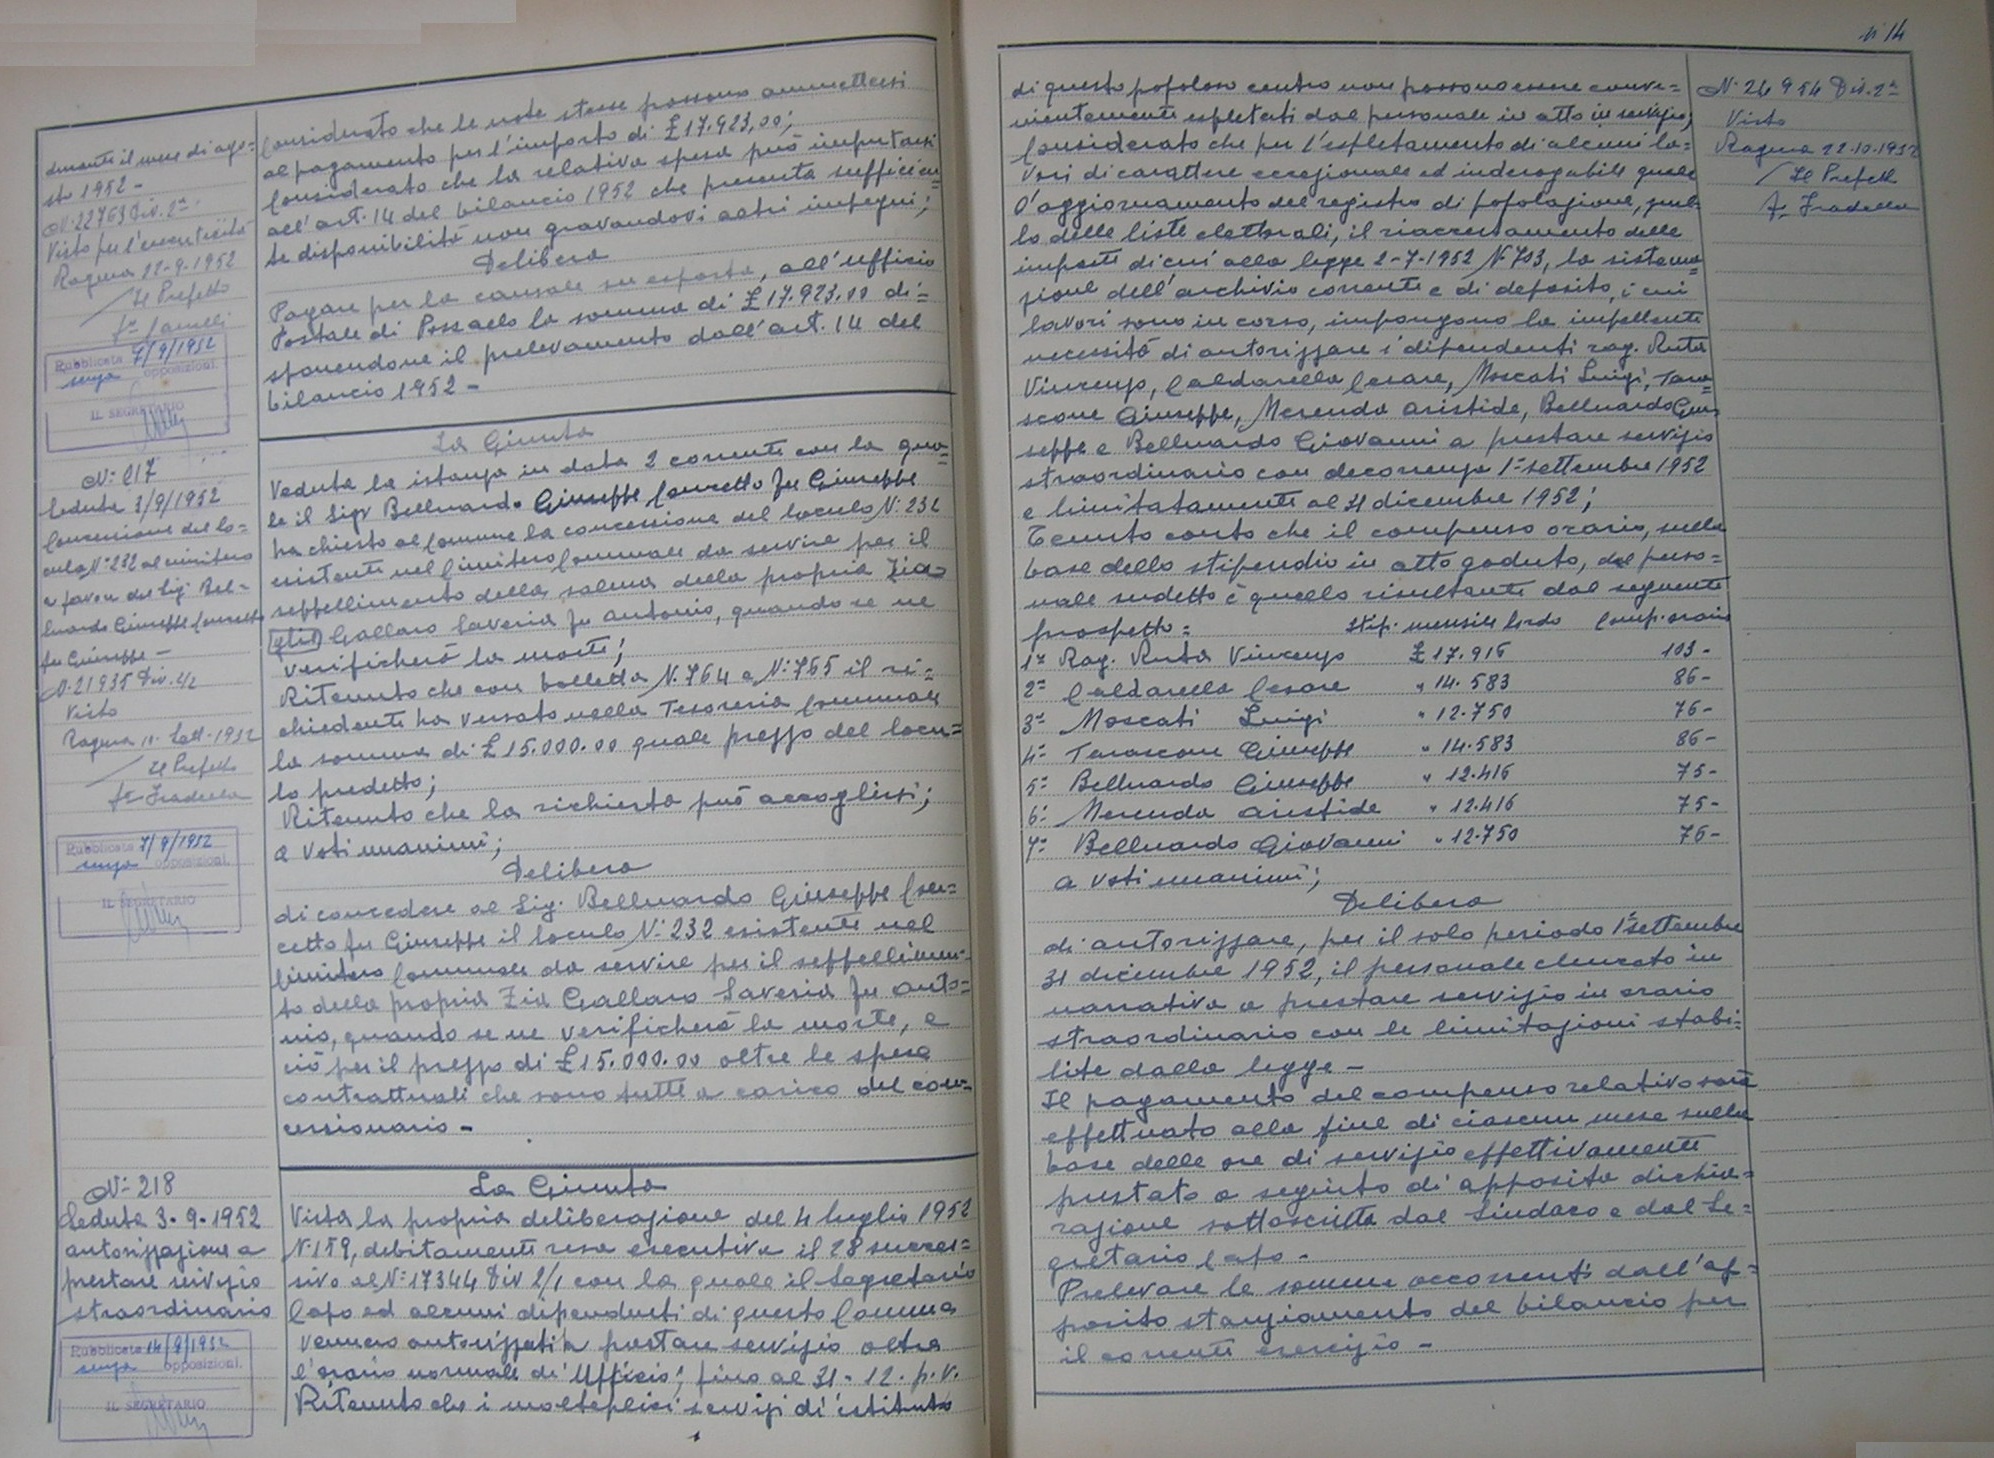 durante il mese di ago=
sto 1952 -
N. 22763 Div. 2ª
Visto per l'esecutività
Ragusa 22-9-1952
Il Prefetto
Pubblicata 7/9/1952
senza opposizioni.
IL SEGRETARIO
N: 217
Seduta 3/9/1952
Concessione del lo=
culo N: 232 al cimitero
a favore del Sig. Bel=
luardo Giuseppe Concetto
fu Giuseppe -
N. 21935 Div. 2/2
Visto
Ragusa 11. Sett. 1952
Il Prefetto
Pubblicata 7/9/1952
senza opposizioni.
IL SEGRETARIO
N: 218
Seduta 3-9-1952
autorizzazione a
prestare servizio
straordinario
Pubblicata 14/9/1952
senza opposizioni.
IL SEGRETARIO
Considerato che le note stesse possono ammettersi
al pagamento per l'importo di £ 17.923,00;
Considerato che la relativa spesa può imputarsi
all'art. 14 del bilancio 1952 che presenta sufficien=
te disponibilità non gravandovi altri impegni;
Delibera
Pagare per la causale su esposta, all'ufficio
Postale di Pozzallo la somma di £ 17.923.00 di=
sponendone il prelevamento dall'art. 14 del
bilancio 1952 -
La Giunta
Veduta la istanza in data 2 corrente con la qua=
le il Sigr Belluardo Giuseppe Concetto fu Giuseppe
ha chiesto al Comune la concessione del loculo N: 232
esistente nel Cimitero Comunale da servire per il
seppellimento della salma della propria Zia
Gallaro Saveria fu Antonio, quando se ne
verificherà la morte;
Ritenuto che con bolletta N. 764 e N: 765 il ri=
chiedente ha versato nella Tesoreria Comunale
la somma di £ 15.000.00 quale prezzo del locu=
lo predetto;
Ritenuto che la richiesta può accogliersi;
a voti unanimi;
Delibera
di concedere al Sig. Belluardo Giuseppe Con=
cetto fu Giuseppe il loculo N: 232 esistente nel
Cimitero Comunale da servire per il seppellimen=
to della propria Zia Gallaro Saveria fu Anto=
nio, quando se ne verificherà la morte, e
ciò per il prezzo di £ 15.000.00 oltre le spese
contrattuali che sono tutte a carico del con=
cessionario -
La Giunta
Vista la propria deliberazione del 4 luglio 1952
N: 159, debitamente resa esecutiva il 28 succes=
sivo al N: 17344 Div 2/1 con la quale il Segretario
Capo ed alcuni dipendenti di questo Comune
vennero autorizzati a prestare servizio oltre
l'orario normale di Ufficio; fino al 31-12. p.v.
Ritenuto che i molteplici servizi di istituto
di questo popoloso centro non possono essere conve=
nientemente espletati dal personale in atto in servizio;
Considerato che per l'espletamento di alcuni la=
vori di carattere eccezionale ed inderogabile quale
l'aggiornamento del registro di popolazione, quel=
lo delle liste elettorali, il riaccertamento delle
imposte di cui alla legge 2-7-1952 N: 703, la sistema=
zione dell'archivio corrente e di deposito, i cui
lavori sono in corso, impongono la impellente
necessità di autorizzare i dipendenti rag. Ruta
Vincenzo, Caldarella Cesare, Moscati Luigi, Tara=
scone Giuseppe, Merenda Aristide, Belluardo Giu=
seppe e Belluardo Giovanni a prestare servizio
straordinario con decorrenza 1° settembre 1952
e limitatamente al 31 dicembre 1952;
Tenuto conto che il compenso orario, sulla
base dello stipendio in atto goduto, dal perso=
nale sudetto è quello risultante dal seguente
prospetto = Stip. mensile lordo Comp. orario
1° Rag. Ruta Vincenzo £ 17.916 103-
2° Caldarella Cesare " 14.583 86-
3° Moscati Luigi " 12.750 76-
4° Tarascone Giuseppe " 14.583 86-
5° Belluardo Giuseppe " 12.416 75-
6° Merenda Aristide " 12.416 75-
7° Belluardo Giovanni " 12.750 76-
a voti unanimi;
Delibera
di autorizzare, per il solo periodo 1° settembre
31 dicembre 1952, il personale elencato in
narrativa a prestare servizio in orario
straordinario con le limitazioni stabi=
lite dalla legge -
Il pagamento del compenso relativo sarà
effettuato alla fine di ciascun mese sulla
base delle ore di servizio effettivamente
prestato a seguito di apposita dichia=
razione sottoscritta dal Sindaco e dal Se=
gretario Capo -
Prelevare le somme occorrenti dall'ap=
posito stanziamento del bilancio per
il corrente esercizio -
N: 24954 Div. 2ª
Visto
Ragusa 22.10.1952
Il Prefetto